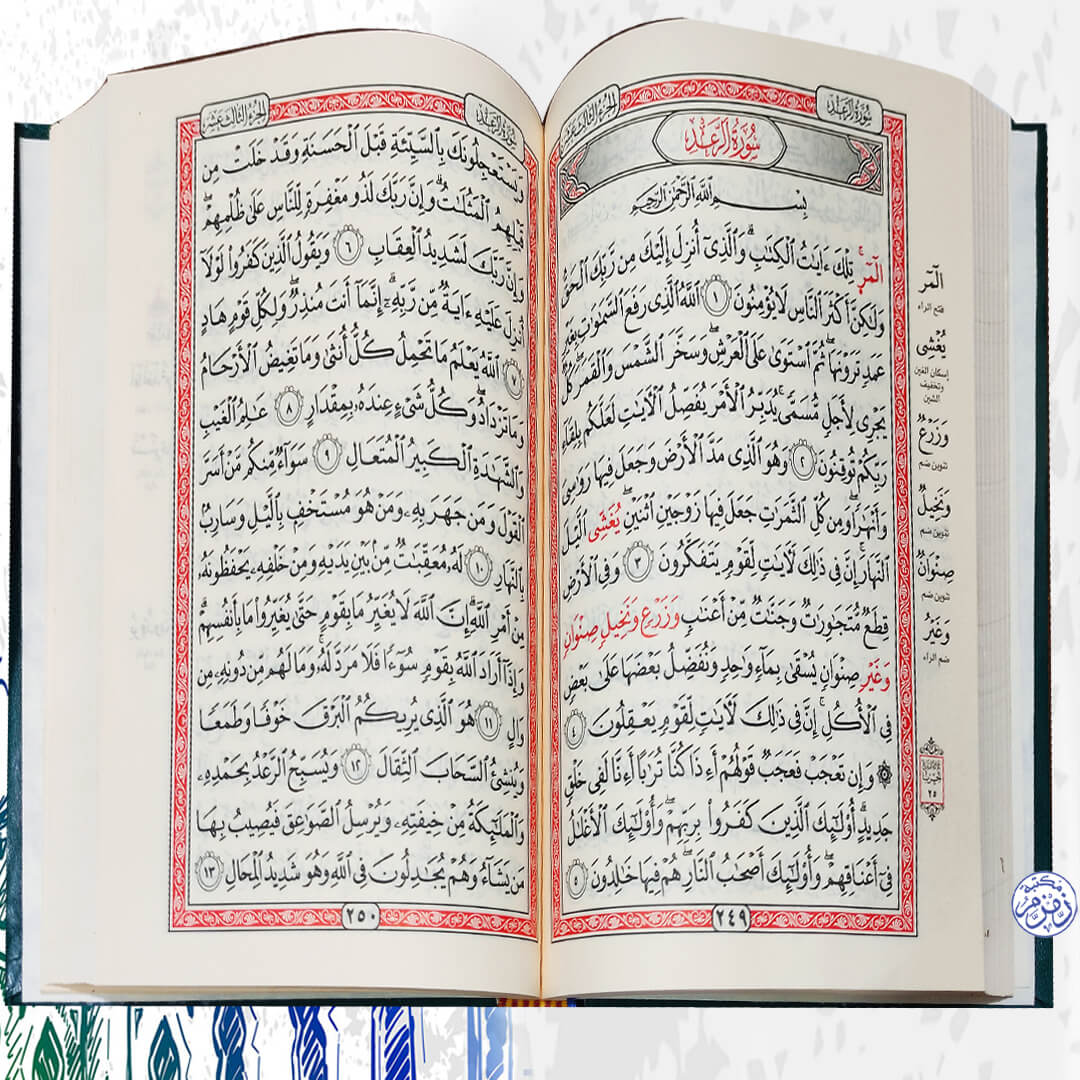 سُورَةُ الرَّعْدِ
الجزء الثالث عشر
سُورَةُ الرَّعْدِ
بِسْمِ اللَّهِ الرَّحْمَٰنِ الرَّحِيمِ
الٓمٓرۚ تِلْكَ ءَايَٰتُ الْكِتَٰبِۗ وَالَّذِىٓ أُنزِلَ إِلَيْكَ مِن رَّبِّكَ الْحَقُّ
وَلَٰكِنَّ أَكْثَرَ النَّاسِ لَا يُؤْمِنُونَ ١ اللَّهُ الَّذِى رَفَعَ السَّمَٰوَٰتِ بِغَيْرِ
عَمَدٍ تَرَوْنَهَاۖ ثُمَّ اسْتَوَىٰ عَلَى الْعَرْشِۖ وَسَخَّرَ الشَّمْسَ وَالْقَمَرَۖ كُلٌّ
يَجْرِى لِأَجَلٍ مُّسَمًّىۚ يُدَبِّرُ الْأَمْرَ يُفَصِّلُ الْءَايَٰتِ لَعَلَّكُم بِلِقَآءِ
رَبِّكُمْ تُوقِنُونَ ٢ وَهُوَ الَّذِى مَدَّ الْأَرْضَ وَجَعَلَ فِيهَا رَوَٰسِىَ
وَأَنْهَٰرًاۖ وَمِن كُلِّ الثَّمَرَٰتِ جَعَلَ فِيهَا زَوْجَيْنِ اثْنَيْنِۖ يُغَشِّى الَّيْلَ
النَّهَارَۚ إِنَّ فِى ذَٰلِكَ لَءَايَٰتٍ لِّقَوْمٍ يَتَفَكَّرُونَ ٣ وَفِى الْأَرْضِ
قِطَعٌ مُّتَجَٰوِرَٰتٌ وَجَنَّٰتٌ مِّنْ أَعْنَٰبٍ وَزَرْعٍ وَنَخِيلٍ صِنْوَانٍ
وَغَيْرِ صِنْوَانٍ يُسْقَىٰ بِمَآءٍ وَٰحِدٍ وَنُفَضِّلُ بَعْضَهَا عَلَىٰ بَعْضٍ
فِى الْأُكُلِۚ إِنَّ فِى ذَٰلِكَ لَءَايَٰتٍ لِّقَوْمٍ يَعْقِلُونَ ٤
۞ وَإِن تَعْجَبْ فَعَجَبٌ قَوْلُهُمْ أَءِذَا كُنَّا تُرَٰبًا أَءِنَّا لَفِى خَلْقٍ
جَدِيدٍۗ أُو۟لَٰٓئِكَ الَّذِينَ كَفَرُوا۟ بِرَبِّهِمْۖ وَأُو۟لَٰٓئِكَ الْأَغْلَٰلُ
فِىٓ أَعْنَاقِهِمْۖ وَأُو۟لَٰٓئِكَ أَصْحَٰبُ النَّارِۖ هُمْ فِيهَا خَٰلِدُونَ ٥
٢٤٩
الٓمٓر
فتح الراء
يُغْشِى
إسكان الغين
وتخفيف
الشين
وَزَرْعٌ
تنوين ضم
وَنَخِيلٌ
تنوين ضم
صِنْوَانٌ
تنوين ضم
وَغَيْرُ
ضم الراء
٢٥
سُورَةُ الرَّعْدِ
الجزء الثالث عشر
وَيَسْتَعْجِلُونَكَ بِالسَّيِّئَةِ قَبْلَ الْحَسَنَةِ وَقَدْ خَلَتْ مِن
قَبْلِهِمُ الْمَثُلَٰتُۗ وَإِنَّ رَبَّكَ لَذُو مَغْفِرَةٍ لِّلنَّاسِ عَلَىٰ ظُلْمِهِمْۖ
وَإِنَّ رَبَّكَ لَشَدِيدُ الْعِقَابِ ٦ وَيَقُولُ الَّذِينَ كَفَرُوا۟ لَوْلَآ
أُنزِلَ عَلَيْهِ ءَايَةٌ مِّن رَّبِّهِۦٓۗ إِنَّمَآ أَنتَ مُنذِرٌۖ وَلِكُلِّ قَوْمٍ هَادٍ
٧ اللَّهُ يَعْلَمُ مَا تَحْمِلُ كُلُّ أُنثَىٰ وَمَا تَغِيضُ الْأَرْحَامُ
وَمَا تَزْدَادُۖ وَكُلُّ شَىْءٍ عِندَهُۥ بِمِقْدَارٍ ٨ عَٰلِمُ الْغَيْبِ
وَالشَّهَٰدَةِ الْكَبِيرُ الْمُتَعَالِ ٩ سَوَآءٌ مِّنكُم مَّنْ أَسَرَّ
الْقَوْلَ وَمَن جَهَرَ بِهِۦ وَمَنْ هُوَ مُسْتَخْفٍۭ بِالَّيْلِ وَسَارِبٌۢ
بِالنَّهَارِ ١٠ لَهُۥ مُعَقِّبَٰتٌ مِّنۢ بَيْنِ يَدَيْهِ وَمِنْ خَلْفِهِۦ يَحْفَظُونَهُۥ
مِنْ أَمْرِ اللَّهِۗ إِنَّ اللَّهَ لَا يُغَيِّرُ مَا بِقَوْمٍ حَتَّىٰ يُغَيِّرُوا۟ مَا بِأَنفُسِهِمْۗ
وَإِذَآ أَرَادَ اللَّهُ بِقَوْمٍ سُوٓءًا فَلَا مَرَدَّ لَهُۥۚ وَمَا لَهُم مِّن دُونِهِۦ مِن
وَالٍ ١١ هُوَ الَّذِى يُرِيكُمُ الْبَرْقَ خَوْفًا وَطَمَعًا
وَيُنشِئُ السَّحَابَ الثِّقَالَ ١٢ وَيُسَبِّحُ الرَّعْدُ بِحَمْدِهِۦ
وَالْمَلَٰٓئِكَةُ مِنْ خِيفَتِهِۦ وَيُرْسِلُ الصَّوَٰعِقَ فَيُصِيبُ بِهَا
مَن يَشَآءُ وَهُمْ يُجَٰدِلُونَ فِى اللَّهِ وَهُوَ شَدِيدُ الْمِحَالِ ١٣
٢٥٠
مكتبة
زمزم